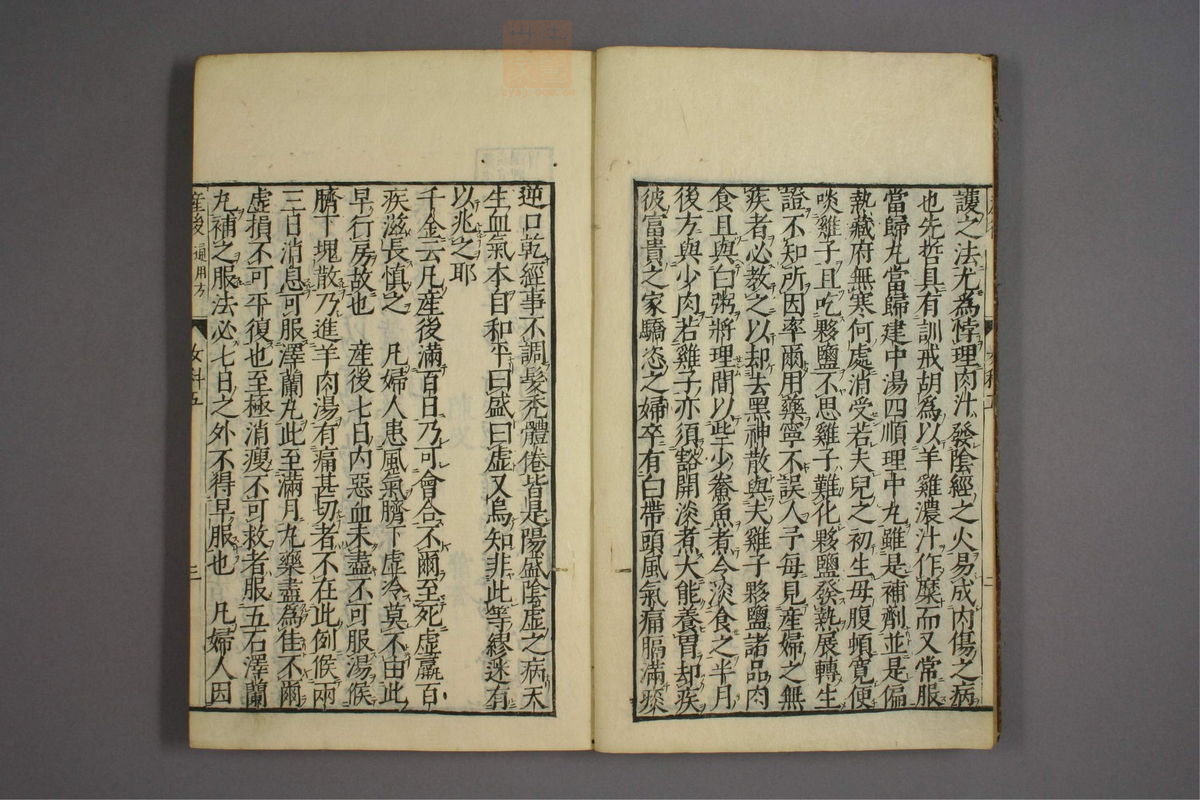 護之法尤為悖理肉汁發陰經之火易成内傷之病
也先哲具有訓戒胡為以羊雞濃汁作糜而又常服
當歸丸當歸建中湯四順理中丸雖是補劑並是偏
熱藏府無寒何處消受若夫兒之初生母腹頓寬便
啖雞子且吃夥鹽不思雞子難化夥鹽發熱展轉生
證不知所因率爾用藥寧不誤人予每見産婦之無
疾者必教之以却去黑神散與夫雞子夥鹽諸品肉
食且與白粥將理間以些少鯗魚煮令淡食之半月
後方與少肉若雞子亦須豁開淡煮大能養胃却疾
彼富貴之家驕恣之婦卒有白帶頭風氣痛膈滿痰
逆口乾經事不調髮禿體倦皆是陽盛陰虛之病天
生血氣本自和平曰盛曰虛又烏知非此等繆迷有
以兆之耶
千金云凡産後滿百日乃可會合不爾至死虛羸百
疾滋長慎之 凡婦人患風氣臍下虛冷莫不由此
早行房故也 産後七日内惡血未盡不可服湯候
臍下塊散乃進羊肉湯有痛甚切者不在此例候兩
三日消息可服澤蘭丸此至滿月丸藥盡為佳不爾
虛損不可平復也至極消瘦不可救者服五石澤蘭
丸補之服法必七日之外不得早服也 凡婦人因
産後 通用方 女科五 三